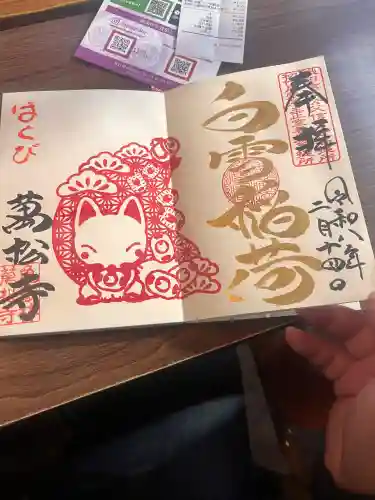 奉拝
白雪稲荷
令和八年
二月十四日
はくび
萬松寺